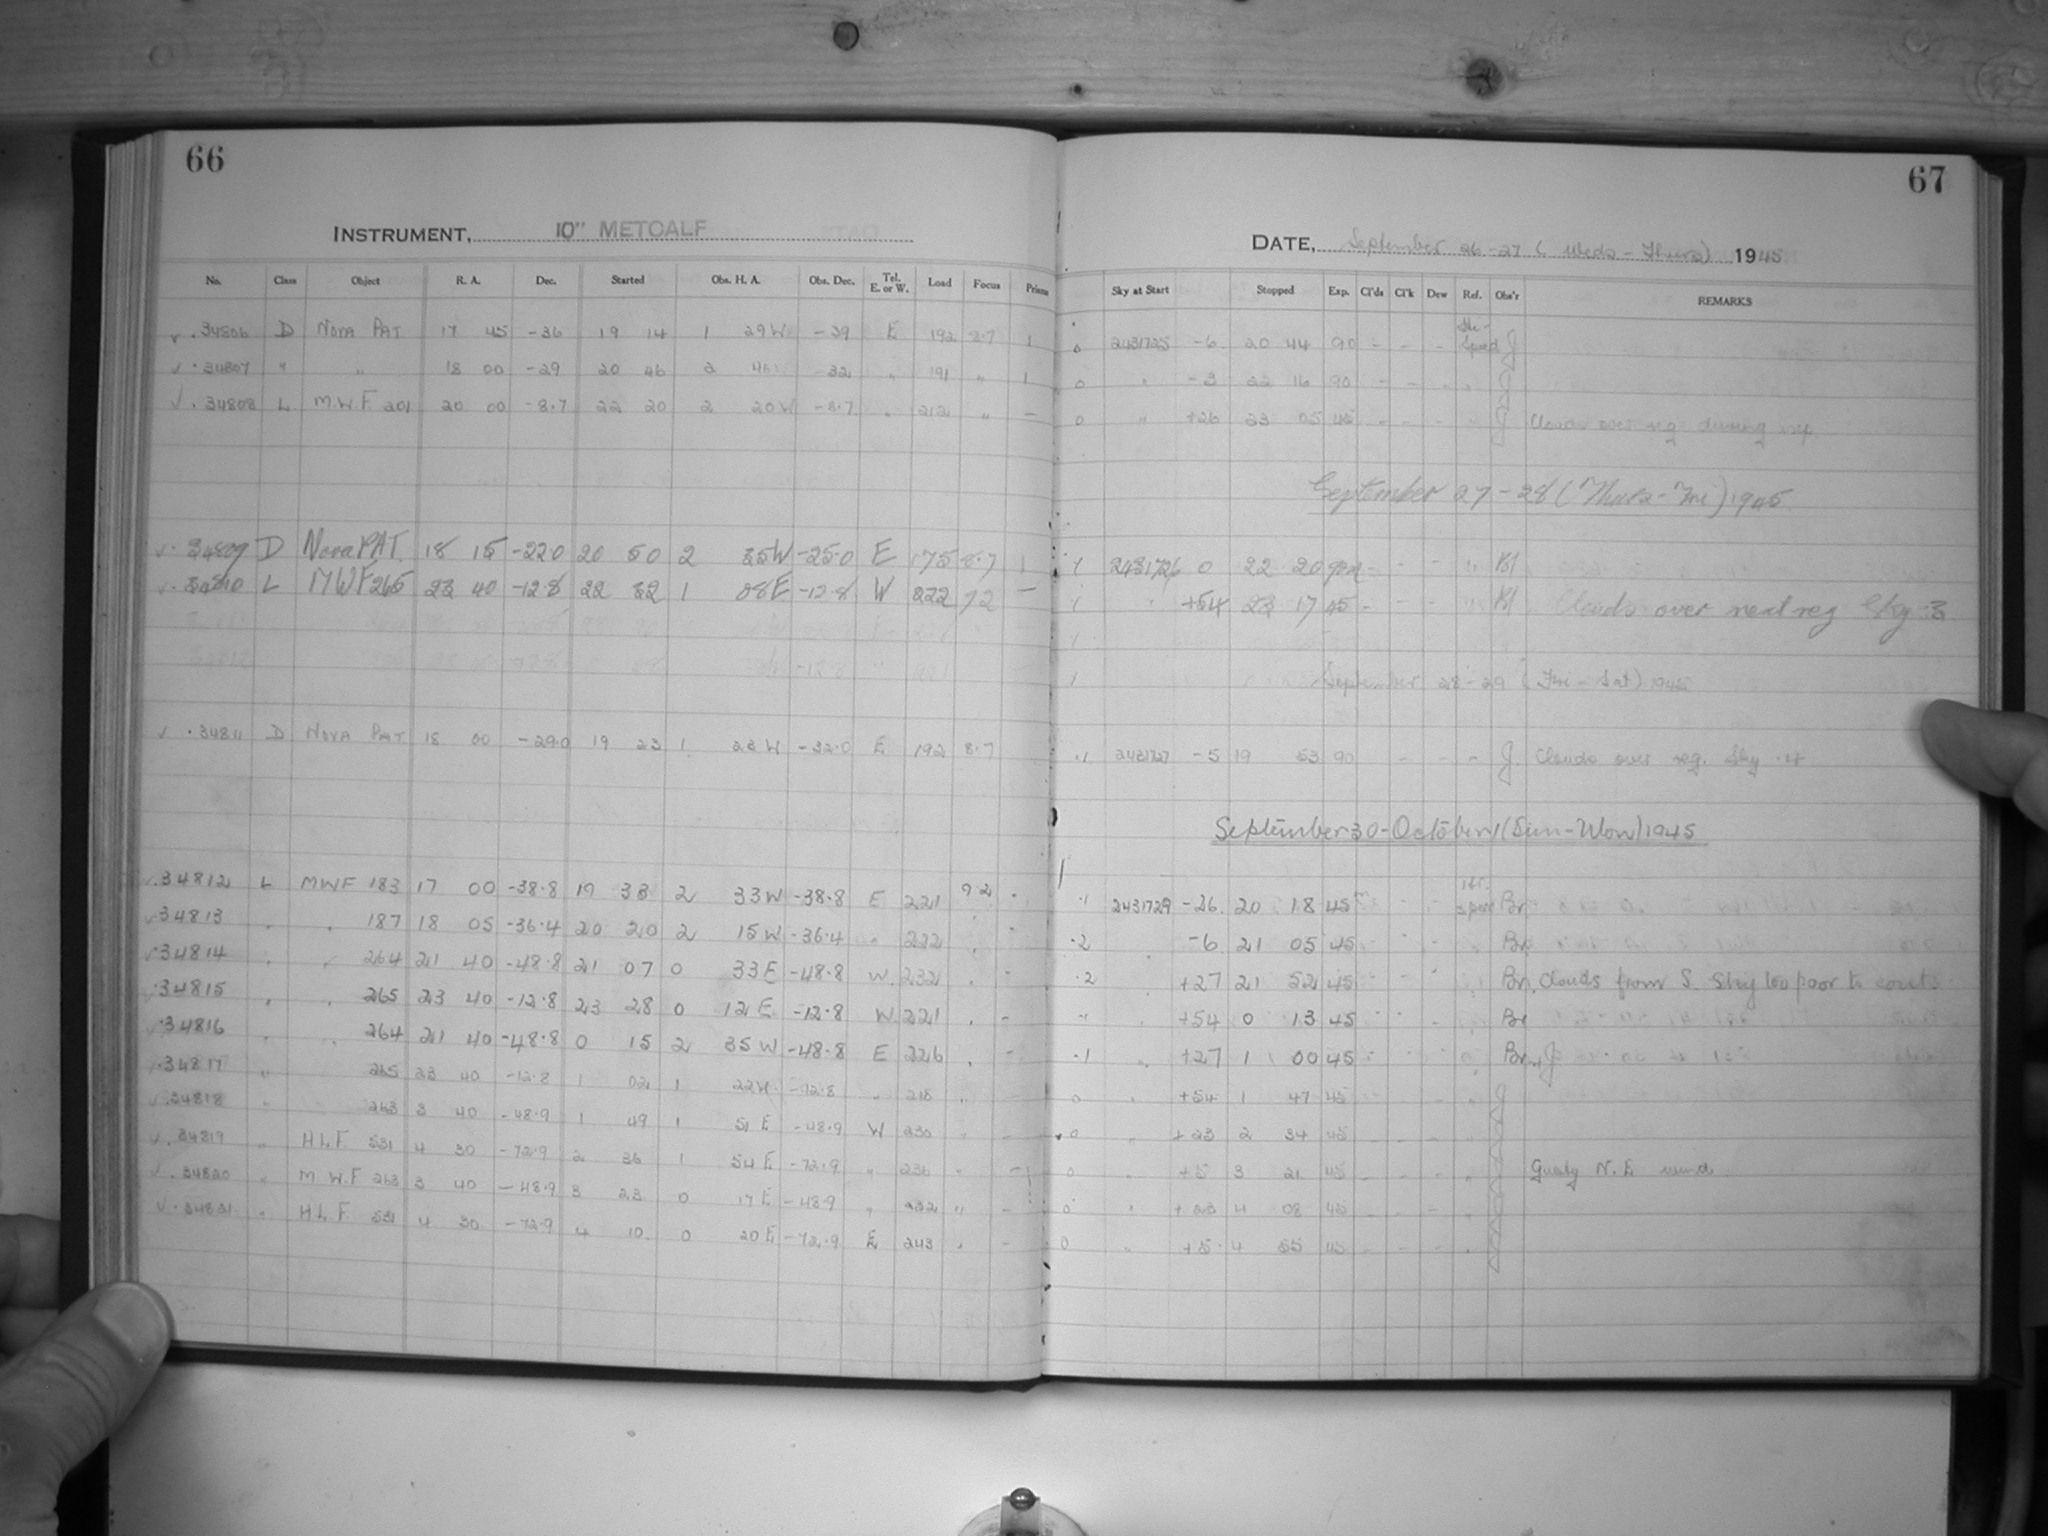 66
INSTRUMENT, 10" METCALF
No. Class Object R. A. Dec. Started Obs. H. A. Obs. Dec. Tel. E. or W. Load Focus Prism
34806 D NOVA PAT 17 45 -36 19 14 1 29W -39 E 192 8.7 1
34807 " " 18 00 -29 20 46 2 46 -32 " 191 " 1
34808 L M.W.F. 201 20 00 -8.7 22 20 2 20W -8.7 " 212 " -
34809 D Nova PAT 18 15 -22.0 20 50 2 35W -25.0 E 175 8.7 1
34810 L MWF 265 23 40 -12.8 22 32 1 08E -12.8 W 222 -
34811 D NOVA PAT 18 00 -29.0 19 23 1 22W -32.0 E 192 8.7
34812 L MWF 183 17 00 -38.8 19 33 2 33W -38.8 E 221 9.2 -
34813 " " 187 18 05 -36.4 20 20 2 15W -36.4 " 222 " -
34814 " " 264 21 40 -48.8 21 07 0 33E -48.8 W 232 " -
34815 " " 265 23 40 -12.8 23 28 0 12E -12.8 W 221 " -
34816 " " 264 21 40 -48.8 0 15 2 35W -48.8 E 226 " -
34817 " 265 23 40 -12.8 1 02 1 22W -12.8 " 218 "
34818 " 263 3 40 -48.9 1 49 1 51E -48.9 W 230 " -
34819 " H.L.F. 531 4 30 -72.9 2 36 1 54E -72.9 " 236 " -
34820 " M.W.F 263 3 40 -48.9 3 23 0 17E -48.9 " 232 " -
34821 " H.L.F. 531 4 30 -72.9 4 10 0 20E -72.9 E 243 " -
67
DATE, September 26-27 (Weds-Thurs) 1945
Sky at Start Stopped Exp. Cl'ds Cl'k Dew Ref. Obs'r REMARKS
0 2431725 -6 20 44 90 - - - J
0 " -3 22 16 90 - - - " J
0 " +26 23 05 45 - - - " J Clouds over reg during
September 27-28 (Thurs-Fri) 1945
1 2431726 0 22 20 90 - - - "
1 " +54 23 17 45 - - - " Clouds over next reg Sky .3
September 28-29 (Fri-Sat) 1945
.1 2431727 -5 19 53 90 - - - J Clouds over reg. Sky .4
September 30-October 1 (Sun-Mon) 1945
.1 2431729 -26 20 18 45 Br
.2 -6 21 05 45 Br
.2 +27 21 52 45 Br. Clouds from S. Sky too poor to cont.
+54 0 13 45 Br
.1 " +27 1 00 45 Br., J
0 " +54 1 47 45 J
0 " +23 2 34 45
0 " +5 3 21 45 Gusty N.E wind
0 " +23 4 08 45
0 " +5 4 55 45